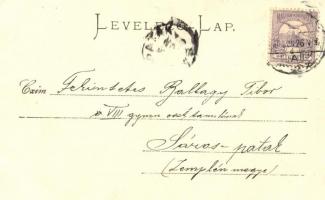 LEVELEZŐ-LAP.
Czím: Tekintetes Baltazy Tibor
VIII gymn oszt tanulónak
Sáros-patak
(Zemplén megye)